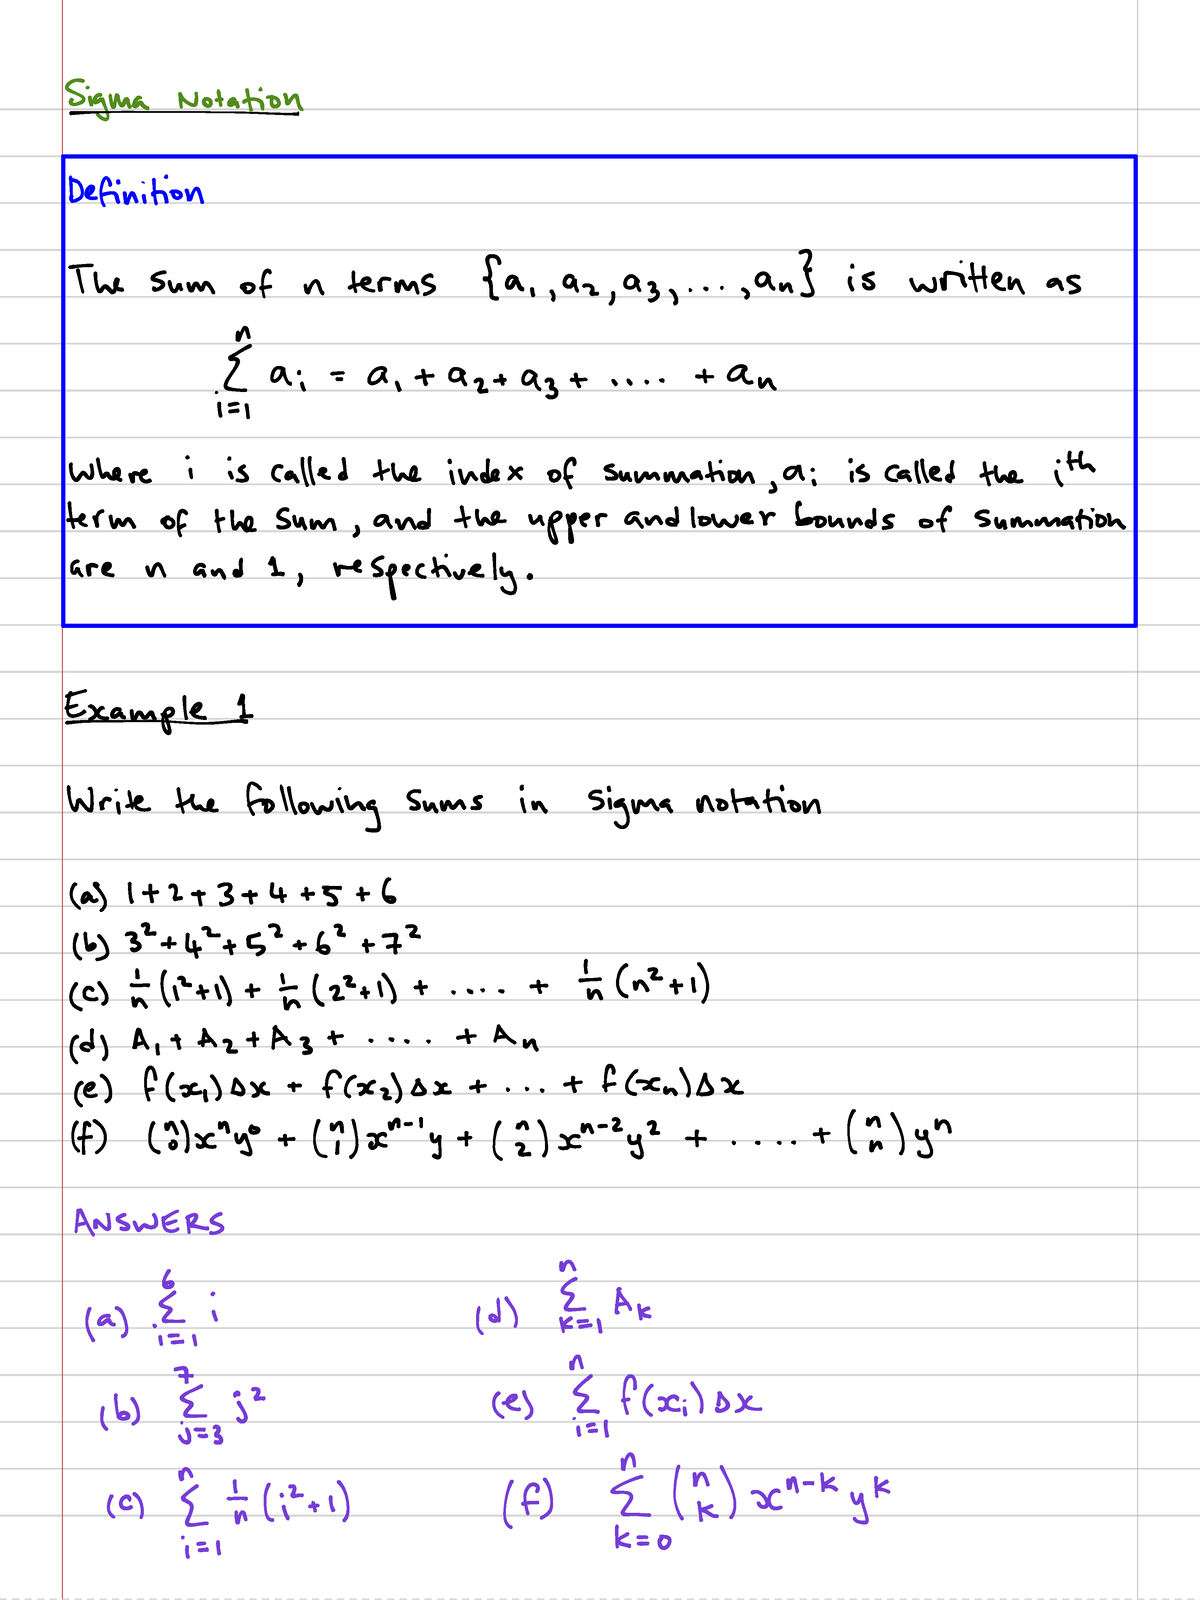 Sigma Notation
Definition
The sum of n terms {a₁, a₂, a₃, ..., aₙ} is written as
n
Σ aᵢ = a₁ + a₂ + a₃ + .... + aₙ
i=1
where i is called the index of summation, aᵢ is called the iᵗʰ
term of the sum, and the upper and lower bounds of summation
are n and 1, respectively.
Example 1
Write the following sums in sigma notation
(a) 1+2+3+4+5+6
(b) 3²+4²+5²+6²+7²
(c) 1/n (1²+1) + 1/n (2²+1) + .... + 1/n (n²+1)
(d) A₁ + A₂ + A₃ + .... + Aₙ
(e) f(x₁)Δx + f(x₂)Δx + ... + f(xₙ)Δx
(f) (n 0)xⁿy⁰ + (n 1)xⁿ⁻¹y + (n 2)xⁿ⁻²y² + .... + (n n)yⁿ
ANSWERS
6
(a) Σ i
i=1
n
(d) Σ Aₖ
k=1
7
(b) Σ j²
j=3
n
(e) Σ f(xᵢ)Δx
i=1
n
(c) Σ 1/n (i²+1)
i=1
n
(f) Σ (n k) xⁿ⁻ᵏ yᵏ
k=0